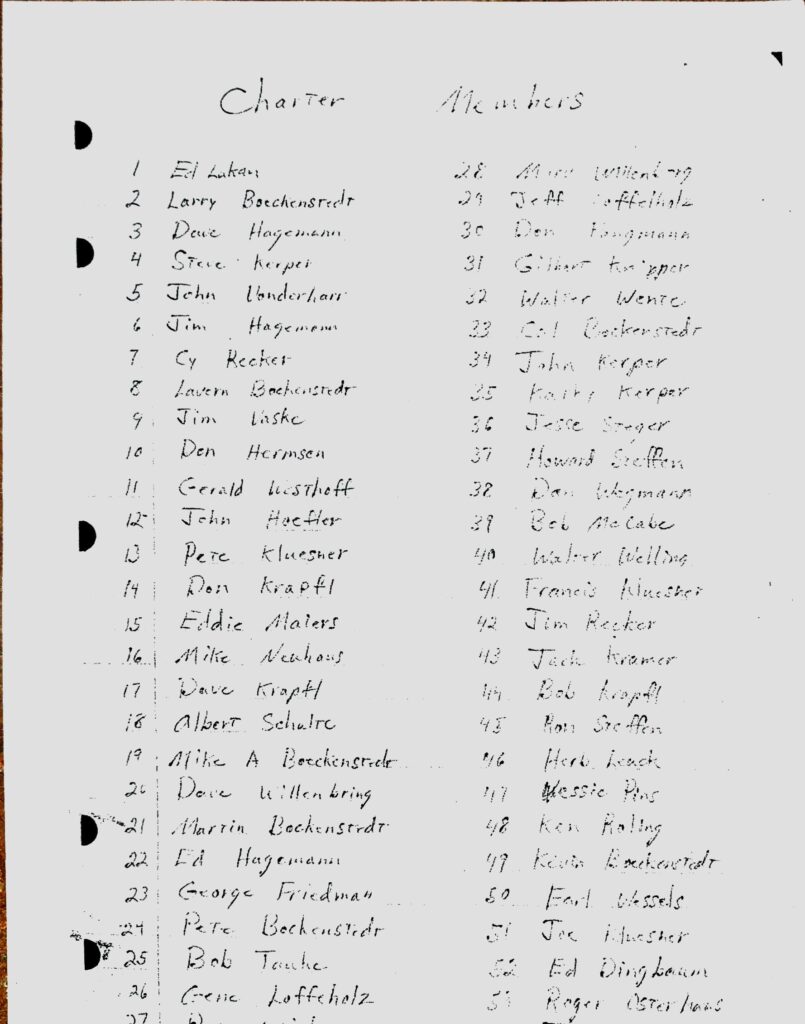 Charter Members
1 Ed Lukan
2 Larry Boeckenstedt
3 Dave Hagemann
4 Steve Kerper
5 John Vonderharr
6 Jim Hagemann
7 Cy Recker
8 Lavern Boekenstedt
9 Jim Vaske
10 Don Hermsen
11 Gerald Westhoff
12 John Hoefler
13 Pete Kluesner
14 Don Krapfl
15 Eddie Maiers
16 Mike Neuhaus
17 Dave Krapfl
18 Albert Schulte
19 Mike A Boeckenstedt
20 Dave Willenbring
21 Martin Bockenstedt
22 Ed Hagemann
23 George Friedman
24 Pete Bockenstedt
25 Bob Tauke
26 Gene Loffelholz
27
28 Willenberg
29 Jeff Loffelholz
30 Don
31 Gilbert Knipper
32 Walter Wente
33 Cal Bockenstedt
34 John Kerper
35 Kathy Kerper
36 Jesse Steger
37 Howard Steffen
38 Dan Wegmann
39 Bob McCabe
40 Walter Welling
41 Francis Kluesner
42 Jim Recker
43 Jack Kramer
44 Bob Krapfl
45 Ron Steffen
46 Herb Leack
47 Pins
48 Ken Roling
49 Kevin Boeckenstedt
50 Earl Wessels
51 Joe Kluesner
52 Ed Dingbaum
53 Roger Osterhaus